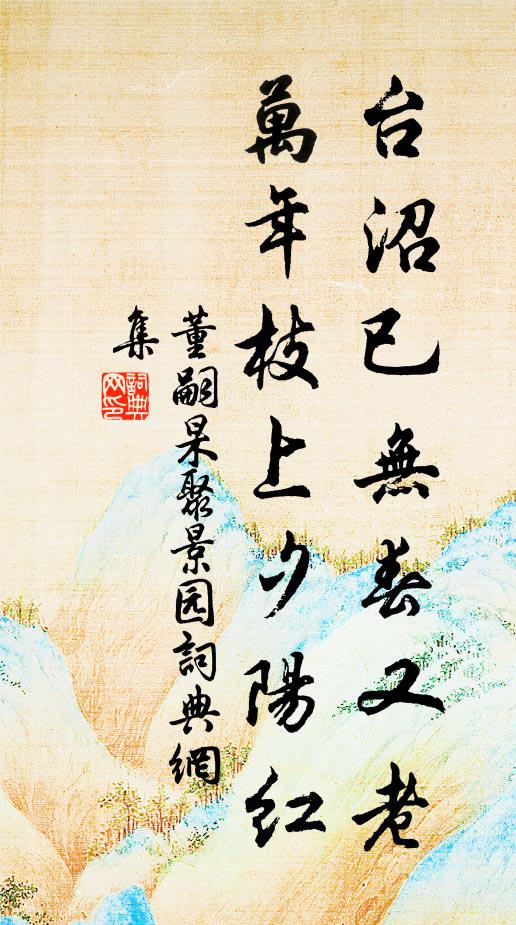 台沼已無春又老
萬年枝上夕陽红
董嗣杲聚景园詞典網
集
詞典
网印